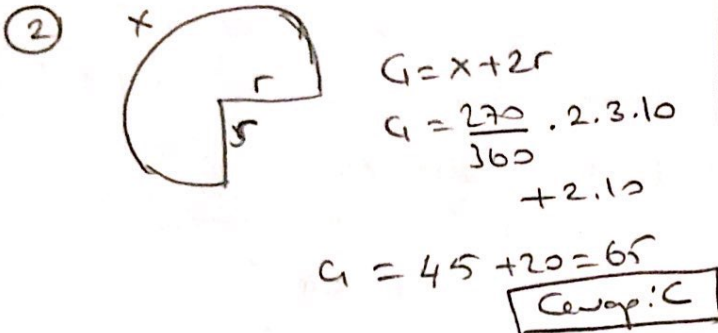 2
x
r
r
Ç = x + 2r
Ç = 270/360 . 2.3.10
+ 2.10
Ç = 45 + 20 = 65
Cevap: C